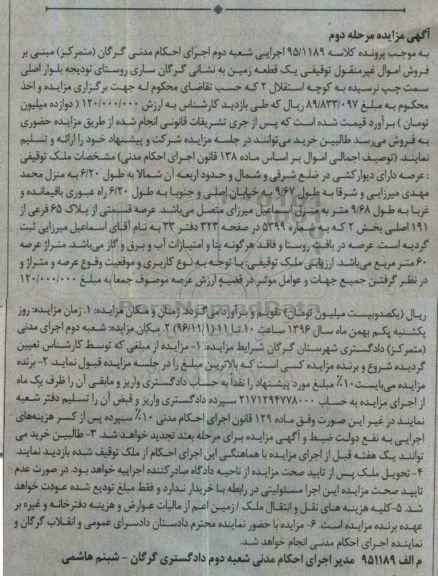 آگهی مزایده مرحله دوم
به موجب پرونده کلاسه ۹۵/۱۱۸۹ اجرایی شعبه دوم اجرای احکام مدنی گرگان (متمرکز) مبنی بر
فروش اموال غیرمنقول توقیفی یک قطعه زمین به نشانی گرگان ساری روستای توذیجه بلوار اصلی
سمت چپ نرسیده به کوچه استقلال ۲ که حسب تقاضای محکوم له جهت برگزاری مزایده و اخذ
محکوم به مبلغ ۸۹/۸۳۳/۰۹۷ ریال که طی بازدید کارشناس به ارزش ۱۲۰/۰۰۰/۰۰۰ (دوازده میلیون
تومان) برآورد قیمت شده است که پس از جری تشریفات قانونی انجام شده از طریق مزایده حضوری
به فروش می‌رسد طالبین خرید می‌توانند در جلسه مزایده شرکت و پیشنهاد خود را ارائه و تسلیم
نمایند. (توصیف اجمالی اموال بر اساس ماده ۱۳۸ قانون اجرای احکام مدنی) مشخصات ملک توقیفی
: عرصه دارای دیوارکشی در ضلع شرقی و شمال و حدود اربعه آن شمالا به طول ۶/۲۰ به منزل محمد
مهدی میرزایی و شرقا به طول ۹/۶۷ به خیابان اصلی و جنوبا به طول ۶/۲۰ راه عبوری باقیمانده و
غربا به طول ۹/۶۸ متر به منزل اسماعیل میرزای متصل می‌باشد. عرصه قسمتی از پلاک ۶۵ فرعی از
۱۹۱ اصلی بخش ۲ که به شماره ۵۳۹۹ در صفحه ۳۲۳ دفتر ۳۳ به نام آقای اسماعیل میرزایی ثبت
گردیده است. عرصه در بافت روستا و فاقد هرگونه بنا و امتیازات آب و برق و گاز می‌باشد. متراژ عرصه
۶۰ متر مربع می‌باشد. ارزیابی ملک توقیفی: با توجه به نوع کاربری و موقعیت وقوع عرصه و متراژ و
در نظر گرفتن جمیع جهات و عوامل موثر در قضیه ارزش عرصه موصوف جمعا به مبلغ ۱۲۰/۰۰۰/۰۰۰
ریال (یکصدوبیست میلیون تومان) تقویم و برآورد می‌گردد. زمان و مکان مزایده: ۱. زمان مزایده: روز
یکشنبه یکم بهمن ماه سال ۱۳۹۶ ساعت ۱۰ تا ۱۱ (۹۶/۱۱/۱) ۲. مکان مزایده: شعبه دوم اجرای مدنی
(متمرکز) دادگستری شهرستان گرگان شرایط مزایده: ۱- مزایده از مبلغی که توسط کارشناس تعیین
گردیده شروع و برنده مزایده کسی است که بالاترین مبلغ را در جلسه مزایده قبول نماید. ۲- برنده
مزایده می‌بایست ۱۰٪ مبلغ مورد پیشنهاد را نقداً به حساب دادگستری واریز و مابقی آن را ظرف یک ماه
از اجرای مزایده به حساب ۲۱۷۱۲۹۴۷۷۸۰۰۰ سپرده دادگستری واریز و قبض آن را تسلیم دفتر شعبه
نمایند در غیر این صورت وفق ماده ۱۲۹ قانون اجرای احکام مدنی ۱۰٪ سپرده پس از کسر هزینه‌های
اجرایی به نفع دولت ضبط و آگهی مزایده برای مرحله بعد تجدید خواهد شد. ۳- طالبین خرید می
توانند یک هفته قبل از اجرای مزایده با هماهنگی این اجرای احکام از ملک توقیف شده بازدید نمایند.
۴- تحویل ملک پس از تایید صحت مزایده از ناحیه دادگاه صادرکننده اجراییه خواهد بود. در صورت عدم
تایید صحت مزایده این اجرا مسئولیتی در رابطه با خریدار ندارد و فقط مبلغ تودیع شده عودت خواهد
شد. ۵- کلیه هزینه های نقل و انتقال ملک / زمین اعم از مالیات عوارض و هزینه دفترخانه و غیره بر
عهده برنده مزایده است. ۶- مزایده با حضور نماینده محترم دادستان دادسرای عمومی و انقلاب گرگان و
نماینده اجرای احکام مدنی انجام خواهد شد.
م الف ۹۵۱۱۸۹ مدیر اجرای احکام مدنی شعبه دوم دادگستری گرگان - شبنم هاشمی